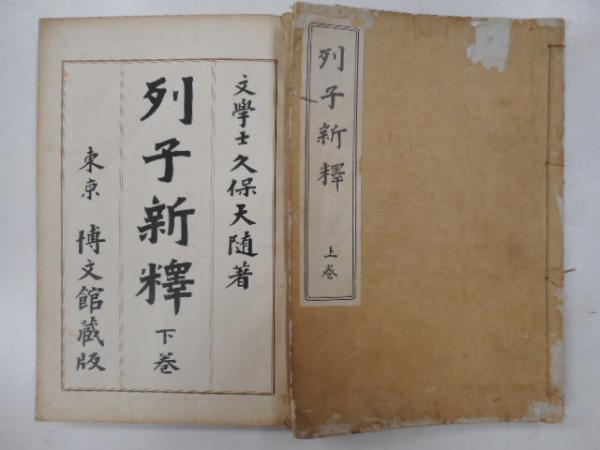 列子新釋
上卷
文學士久保天隨著
列子新釋
下卷
東京 博文館藏版